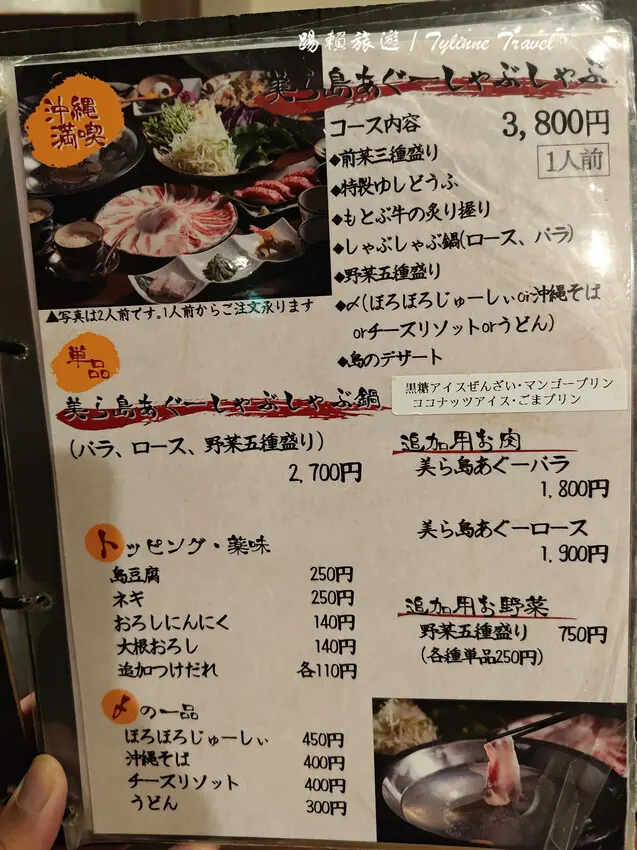 踢賴旅遊 / Tylinne Travel
沖縄
満喫
美ら島あぐーしゃぶしゃぶ
コース内容 3,800円
1人前
◆前菜三種盛り
◆特製ゆしどうふ
◆もとぶ牛の炙り握り
◆しゃぶしゃぶ鍋(ロース、バラ)
◆野菜五種盛り
◆〆(ぼろぼろじゅーしぃor沖縄そば
orチーズリゾットorうどん)
◆島のデザート
黒糖アイスぜんざい・マンゴープリン
ココナッツアイス・ごまプリン
▲写真は2人前です。1人前からご注文承ります
単品
美ら島あぐーしゃぶしゃぶ鍋
(バラ、ロース、野菜五種盛り)
2,700円
追加用お肉
美ら島あぐーバラ
1,800円
美ら島あぐーロース
1,900円
トッピング・薬味
島豆腐 250円
ネギ 250円
おろしにんにく 140円
大根おろし 140円
追加つけだれ 各110円
追加用お野菜
野菜五種盛り 750円
(各種単品250円)
〆の一品
ぼろぼろじゅーしぃ 450円
沖縄そば 400円
チーズリゾット 400円
うどん 300円